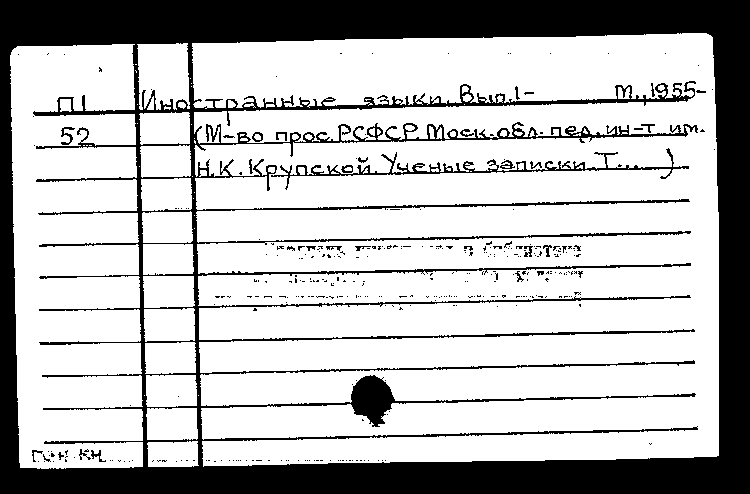 П1 Иностранные языки. Вып.1- М.,1955-
52 (М-во прос. РСФСР. Моск. обл. пед. ин-т им.
Н.К. Крупской. Ученые записки. Т... )
в библиотеке
ген кн